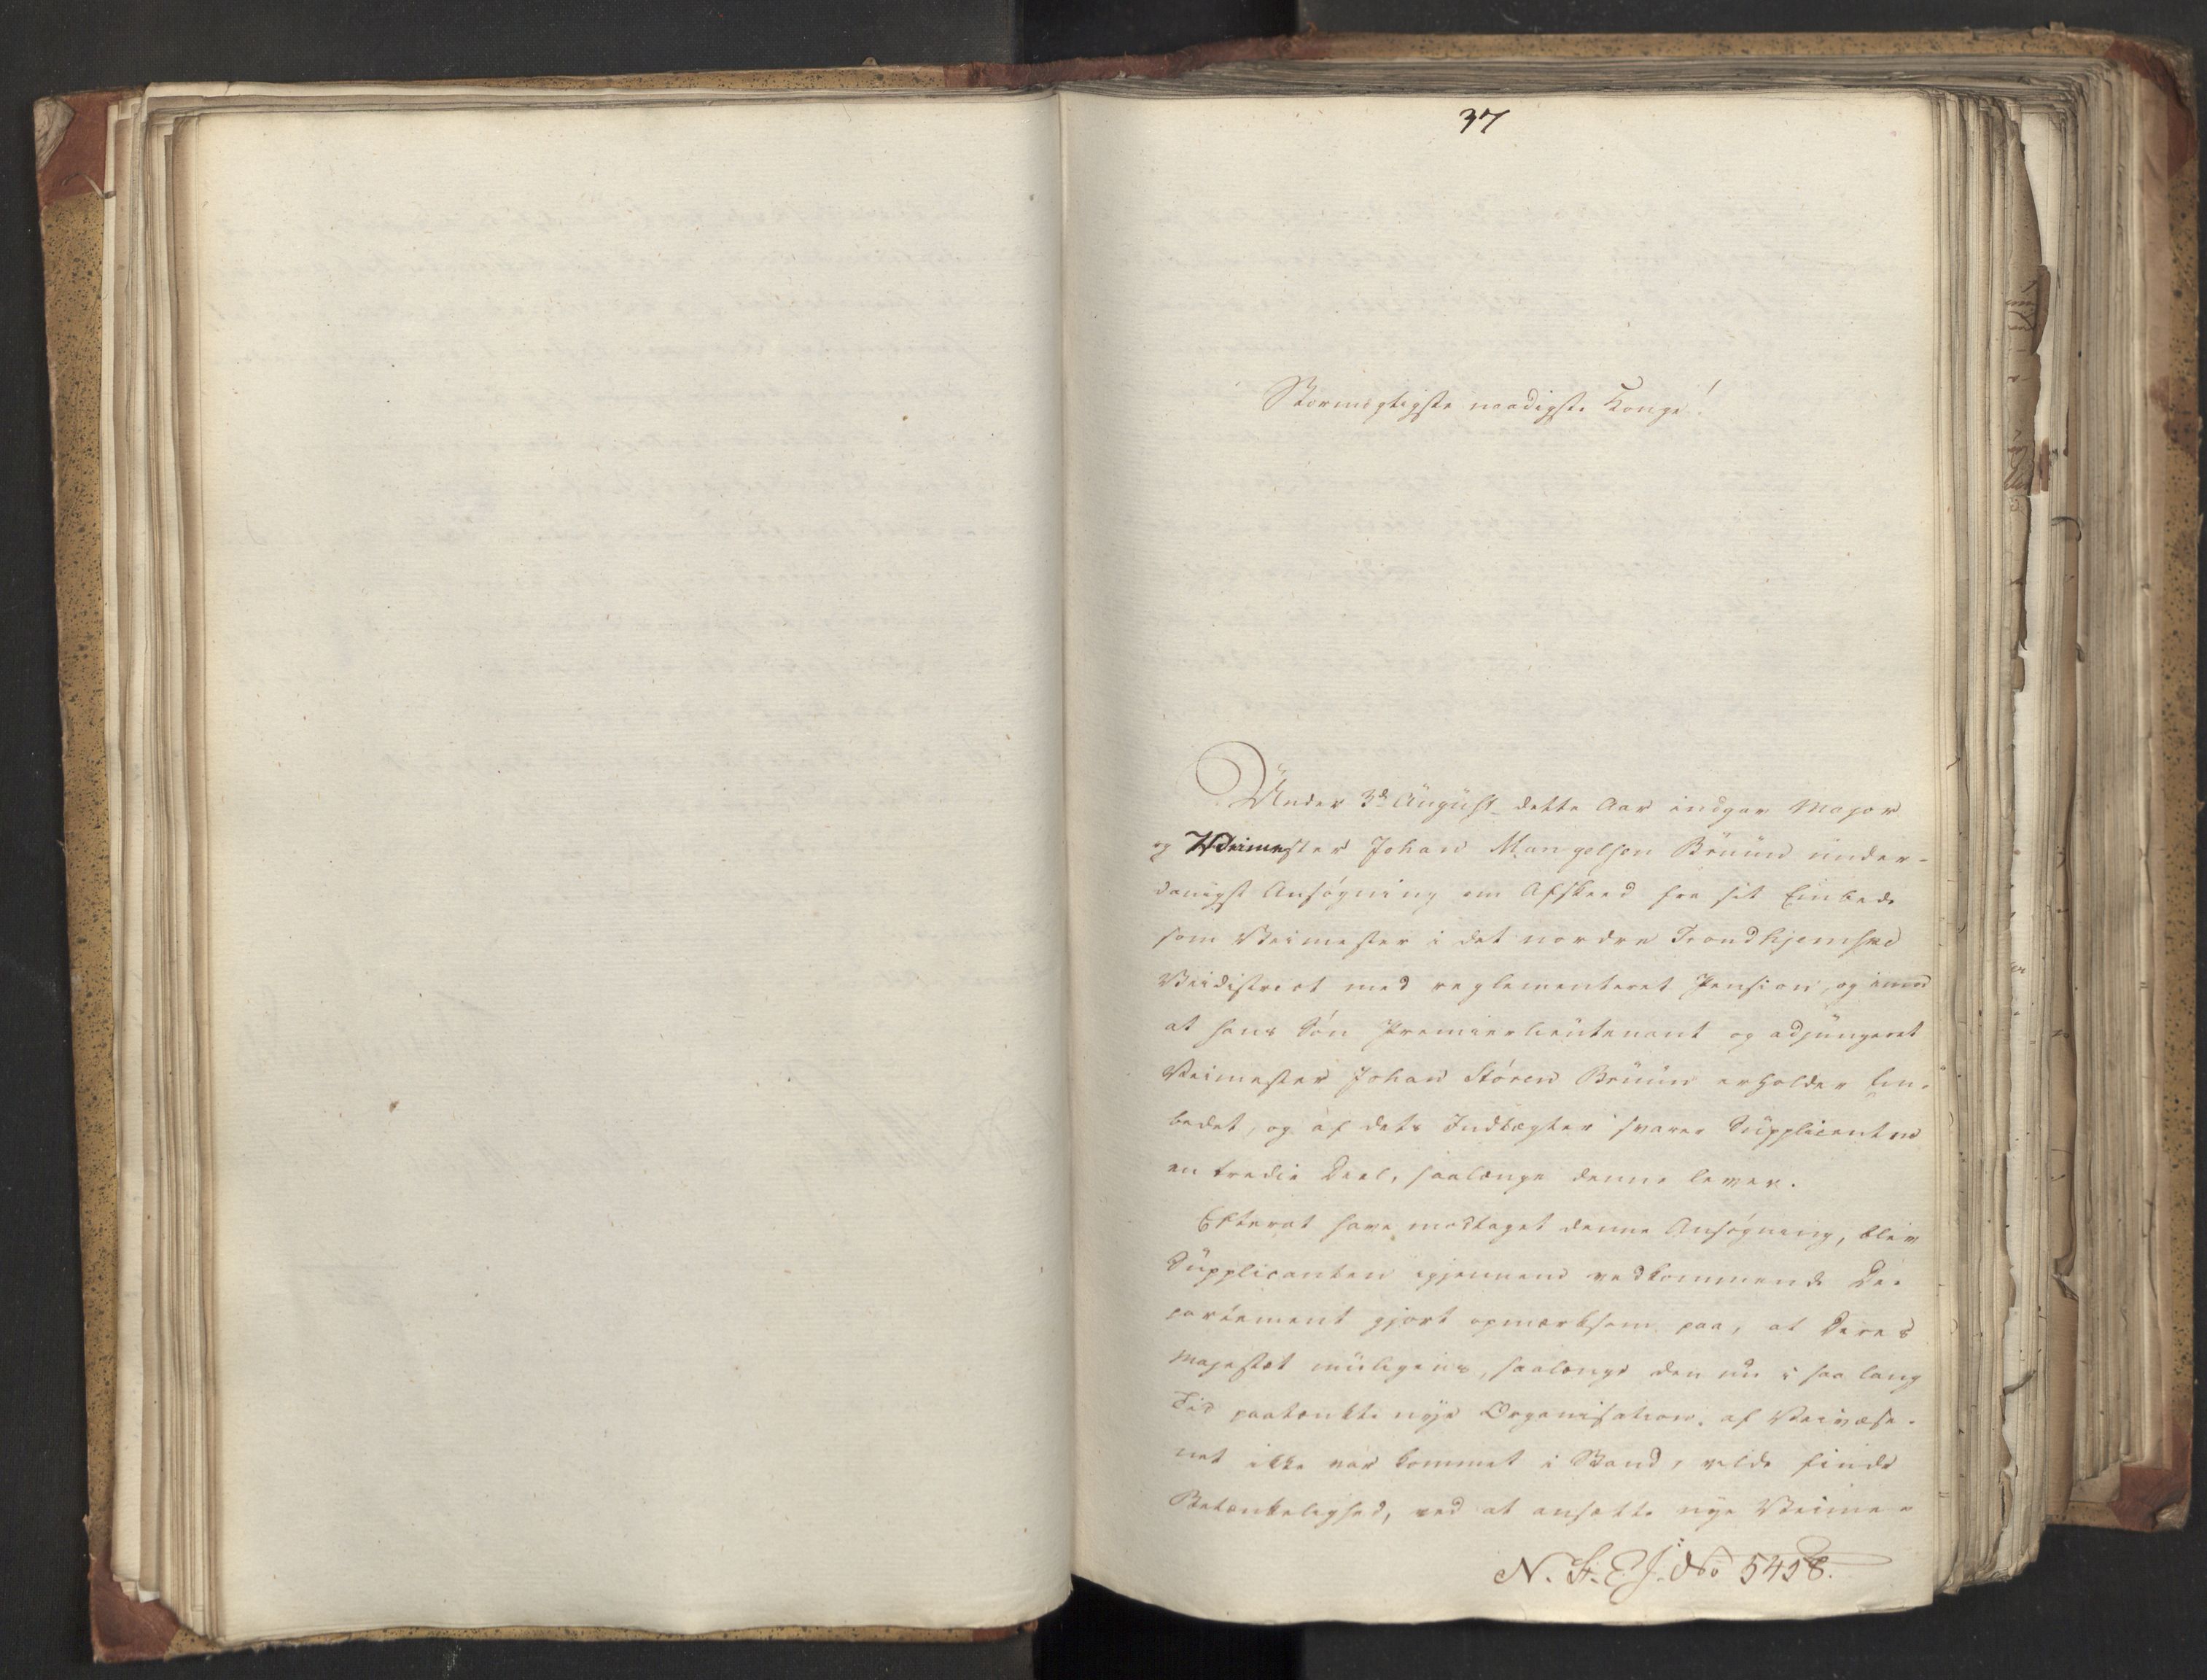 37
Stormægtigste naadigste Konge!
Under 3d August dette Aar indgav Major
og Veimester Johan Mangelsen Bruun under-
danigst Ansøgning om Afskeed fra sit Embede
som Veimester i det nordre Trondhjemske
Veidistrict med reglementeret Pension, og imod
at hans Søn Premierlieutenant og adjungeret
Veimester Johan Støren Bruun erholder Em-
bedet, og af dets Indtægter svarer Supplicanten
en tredie Deel, saalænge denne lever.
Efterat have modtaget denne Ansøgning, blev
Supplicanten igjennem vedkommende De-
partement gjort opmærksom paa, at Deres
Majestæt muligens, saalænge den nu i saa lang
Tid paatænkte nye Organisation af Veivæse-
net ikke var kommet i Stand, vilde finde
Betænkelighed, ved at ansætte nye Veime-
N. St. E. J. No 5458.